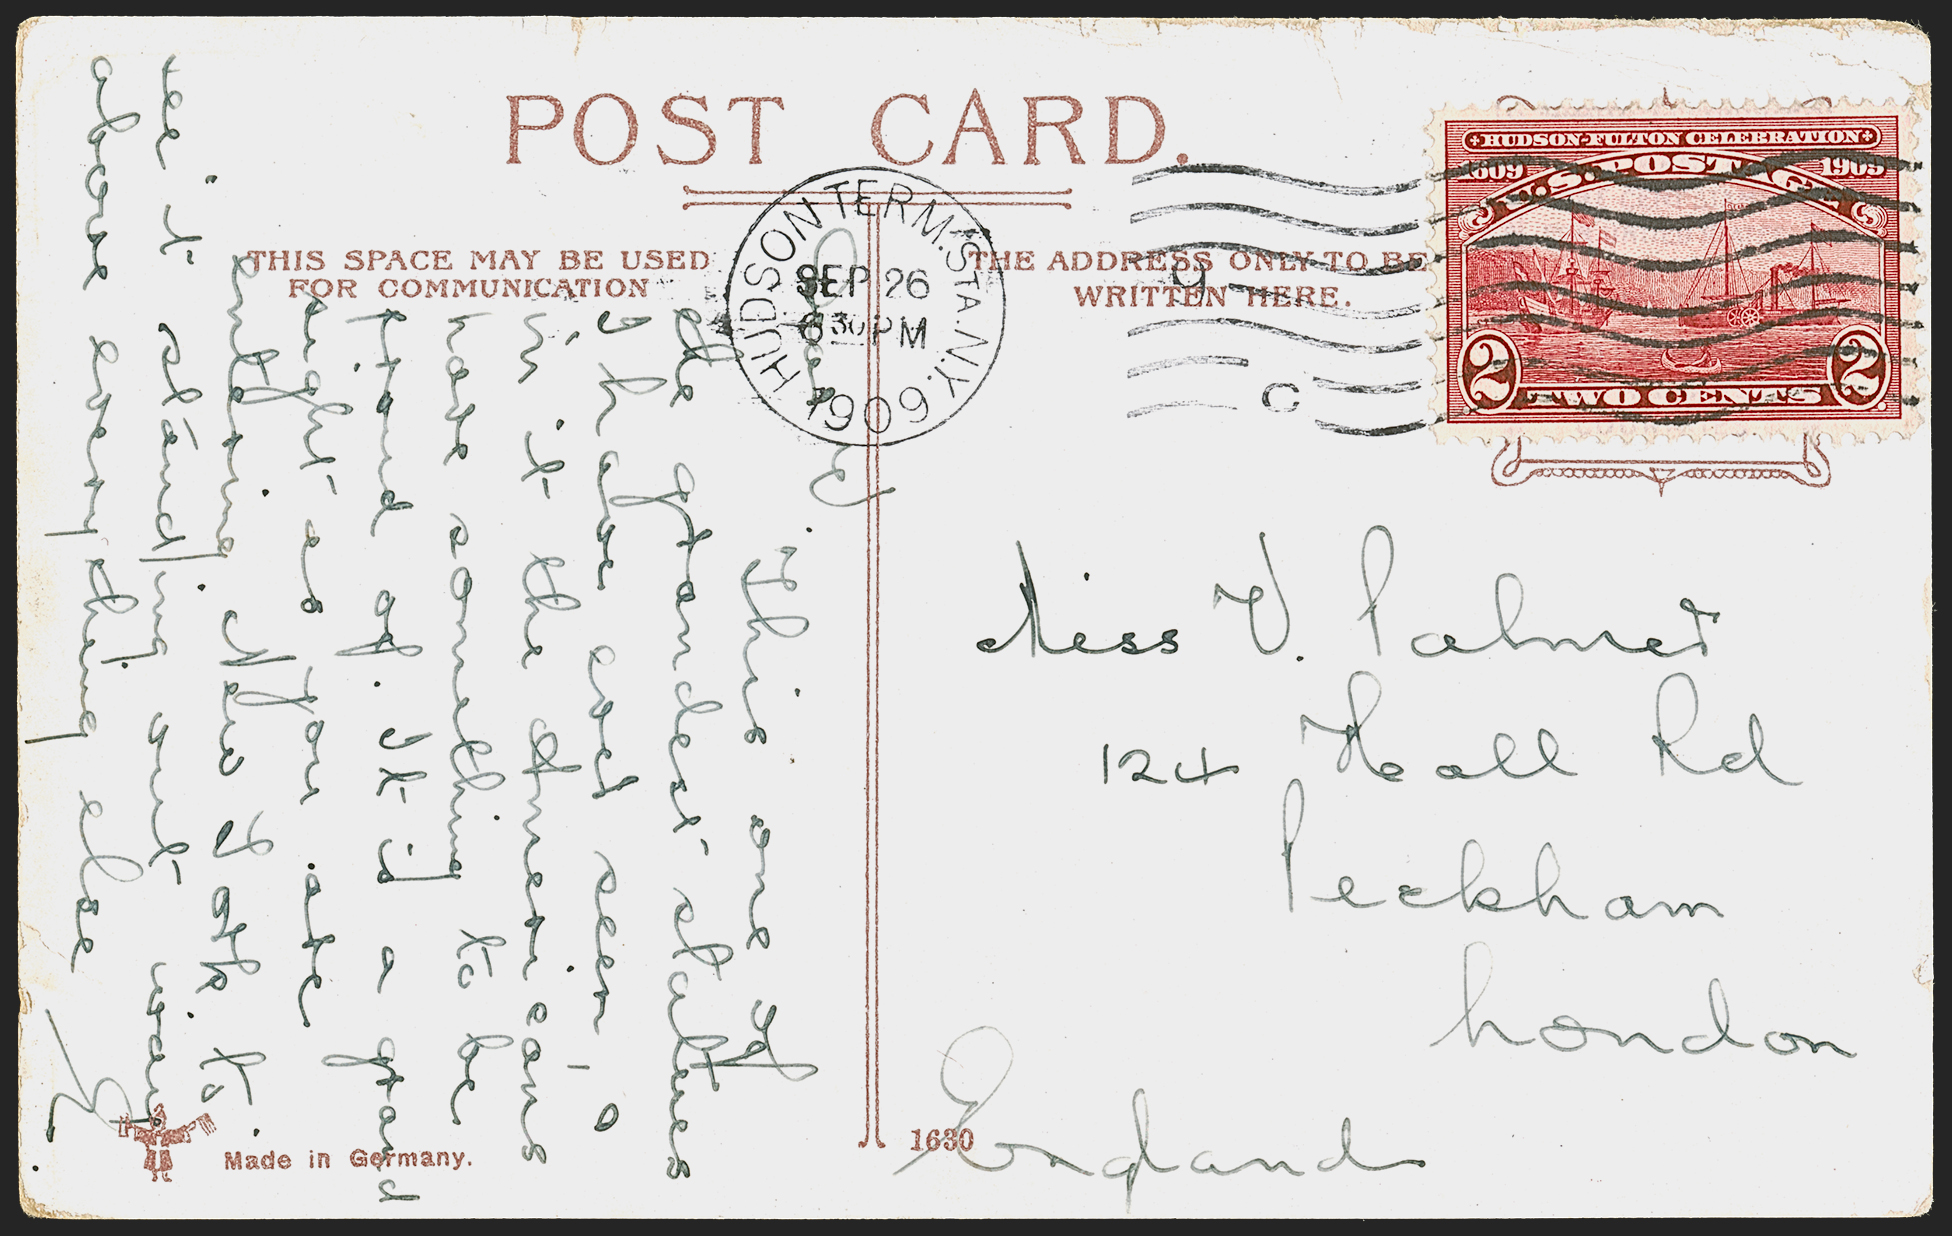 POST CARD.
THIS SPACE MAY BE USED
FOR COMMUNICATION
THE ADDRESS ONLY TO BE
WRITTEN HERE.
HUDSON TERM. STA. N.Y.
SEP 26
6 30 PM
1909
C
HUDSON-FULTON CELEBRATION
1609 1909
U.S. POSTAGE
2 TWO CENTS 2
Dear V
This one of
the grandest statues
I have ever seen,
in it the Americans
have something to be
proud of. It is a grand
sight as you are
entering New York to
see it standing out way
above everything else
Miss V. Palmer
124 Hall Rd
Peckham
London
England
Made in Germany.
1630